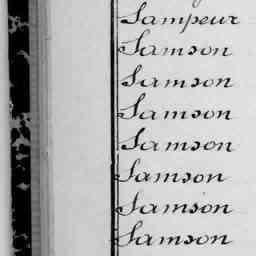 Sampeur
Samson
Samson
Samson
Samson
Samson
Samson
Samson